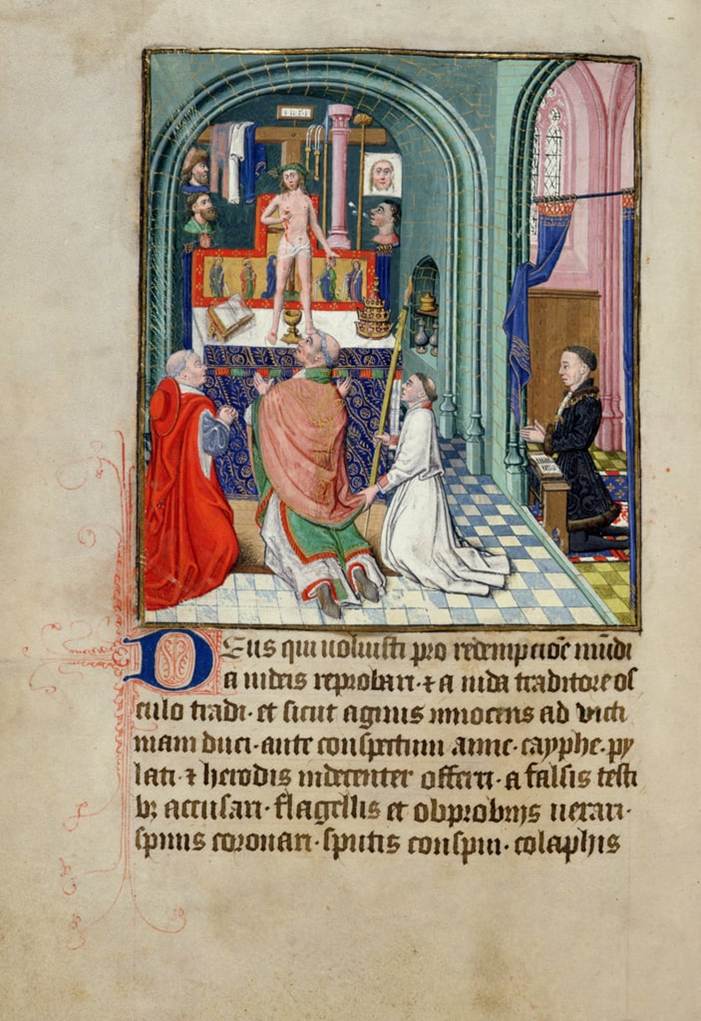 INRI
Deus qui uoluisti pro redempcioē mūdi
a iudeis reprobari · ⁊ a iuda traditore os
culo tradi · et sicut agnus innocens ad victi
mam duci · ante conspectum anne · cayphe · py
lati · ⁊ herodis indecenter offerri · a falsis testi
bꝫ accusari · flagellis et obprobrijs uexari ·
spinis coronari · sputis conspui · colaphis